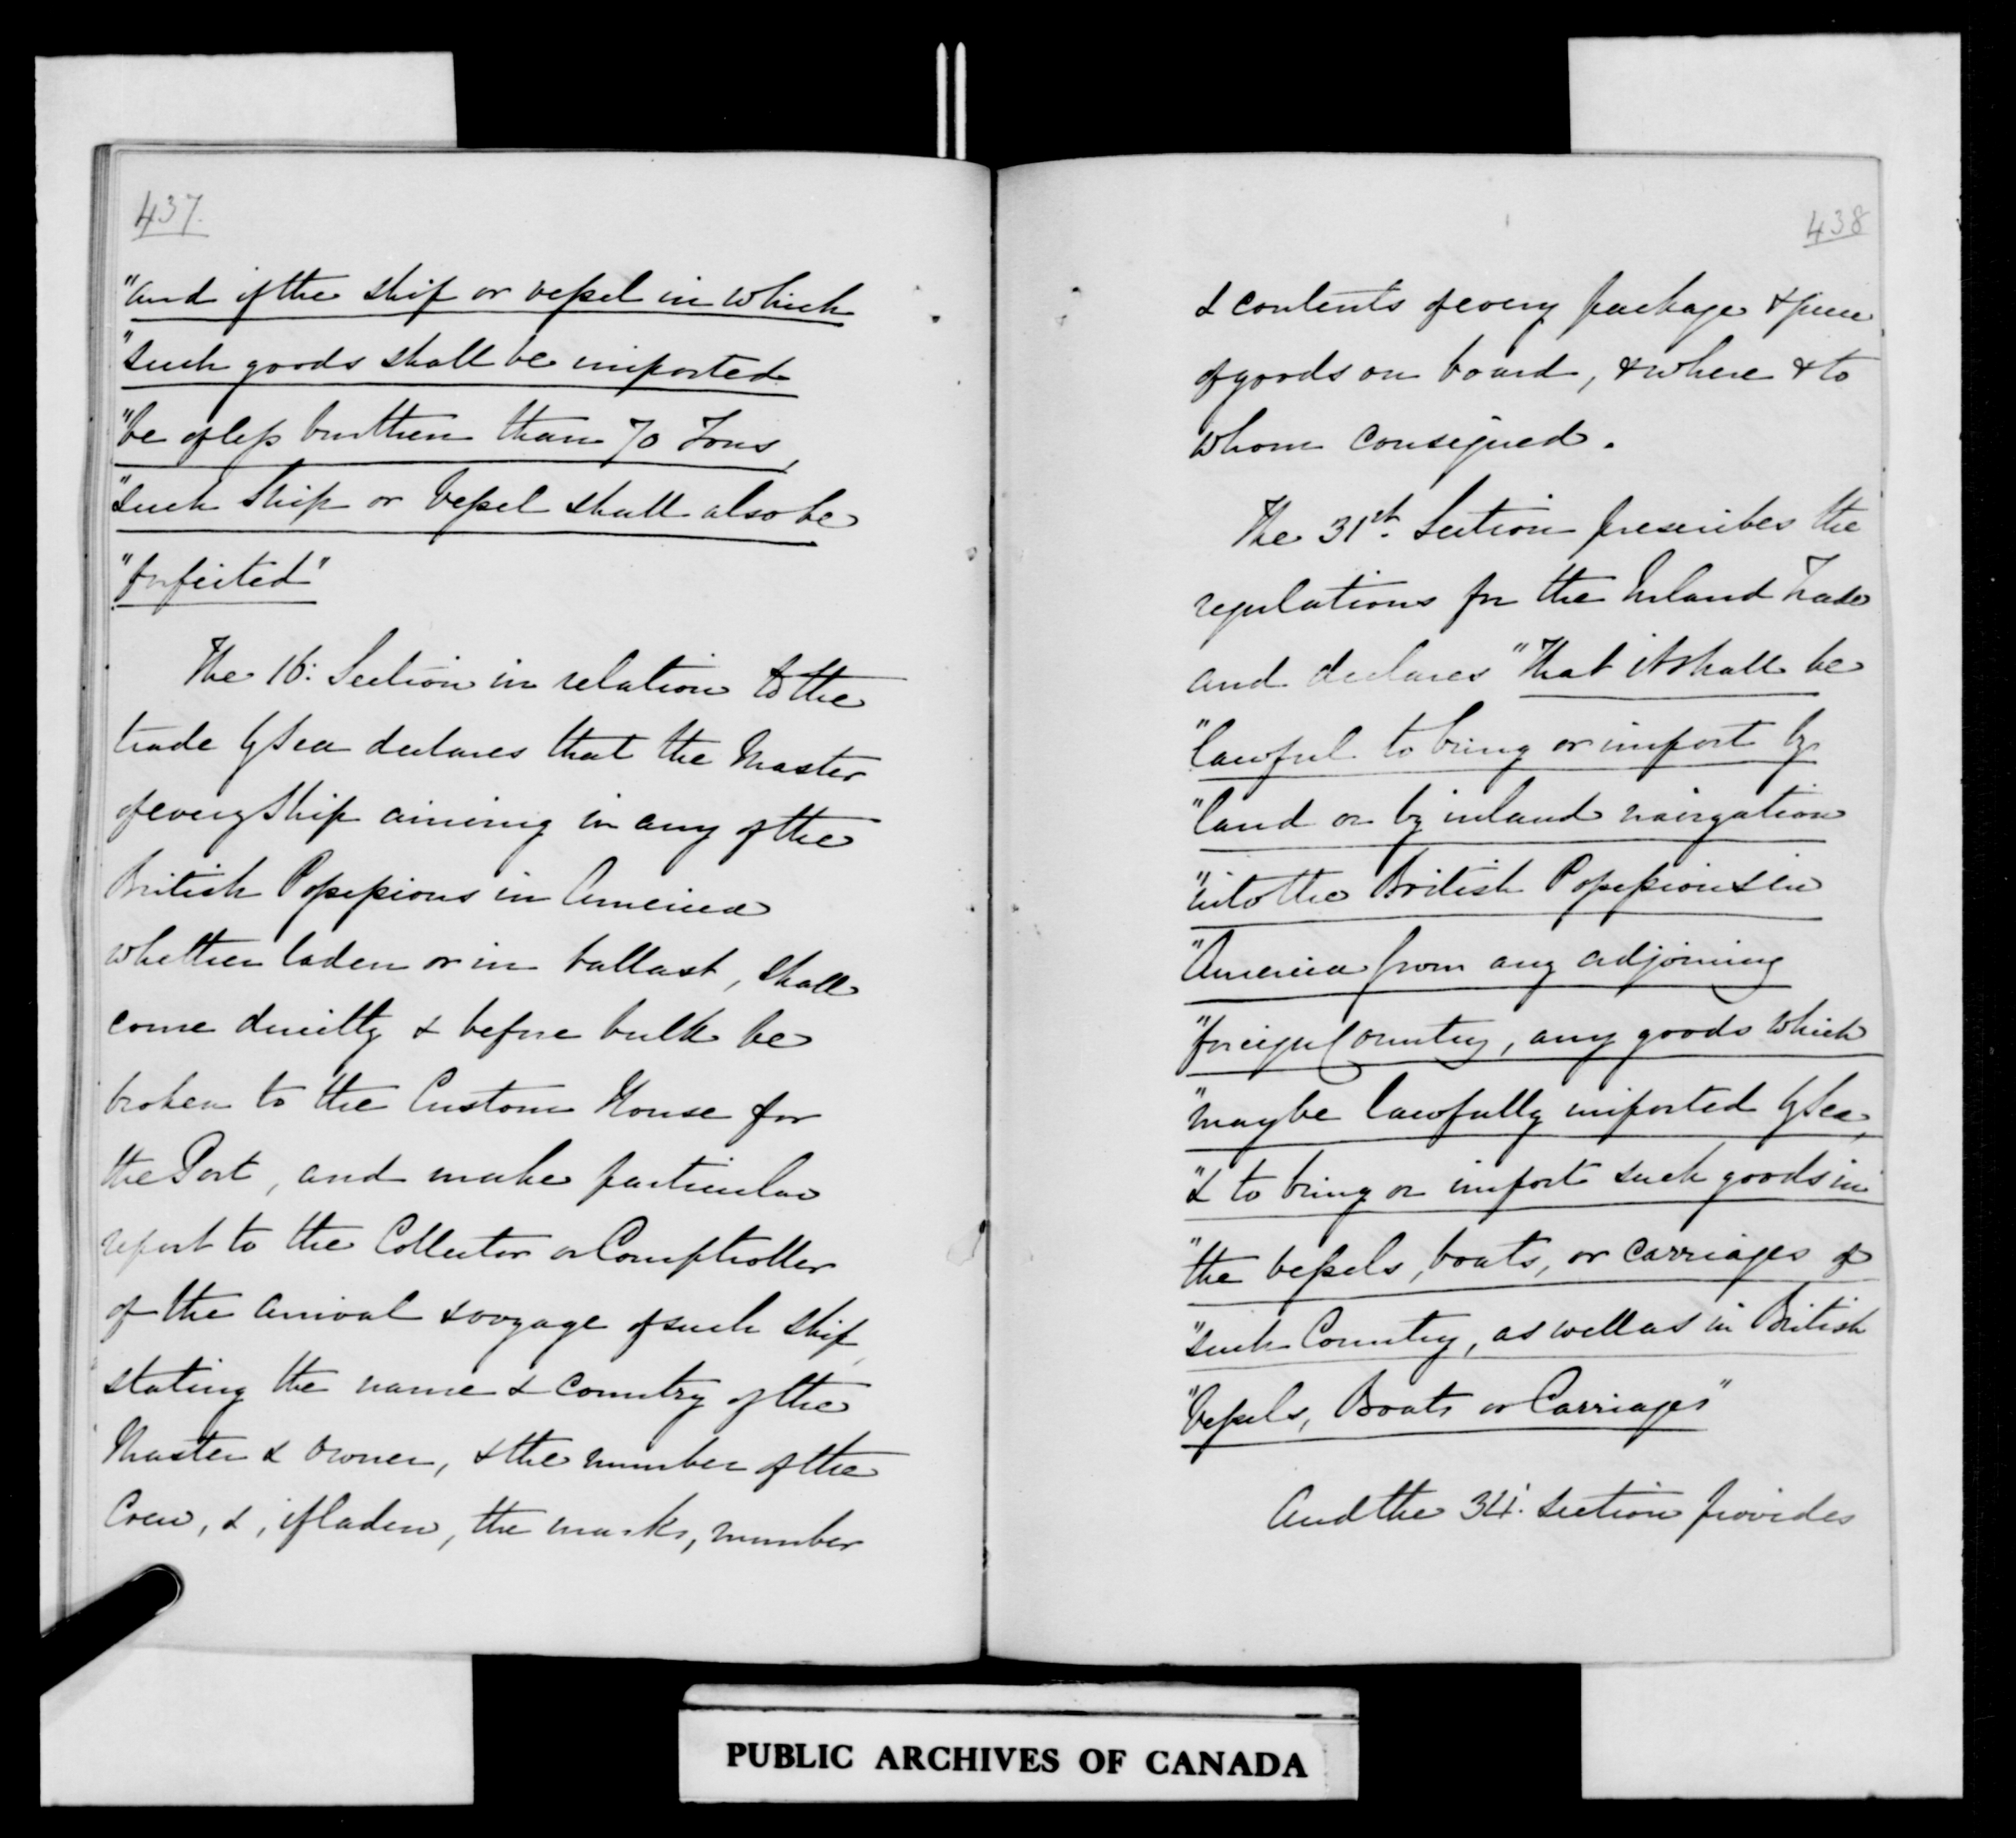 437.
"and if the ship or vessel in which
"such goods shall be imported
"be of less burthen than 70 Tons,
"such Ship or Vessel shall also be
"forfeited"
The 16: Section in relation to the
trade by Sea declares that the Master
of every Ship arriving in any of the
British Possessions in America
whether laden or in ballast, shall
come directly & before bulk be
broken to the Custom House for
the Port, and make particular
report to the Collector or Comptroller
of the arrival & voyage of such ship
stating the name & country of the
Master & owner, & the number of the
Crew, &, if laden, the marks, number
438
& contents of every package & piece
of goods on board, & where & to
whom consigned.
The 31st. Section prescribes the
regulations for the Inland Trade
and declares "That it shall be
"lawful to bring or import by
"land or by inland navigation
"into the British Possessions in
"America from any adjoining
"foreign Country, any goods which
"may be lawfully imported by Sea,
"& to bring or import such goods in
"the vessels, boats, or carriages of
"such Country, as well as in British
"Vessels, Boats or Carriages"
And the 34: section provides
PUBLIC ARCHIVES OF CANADA